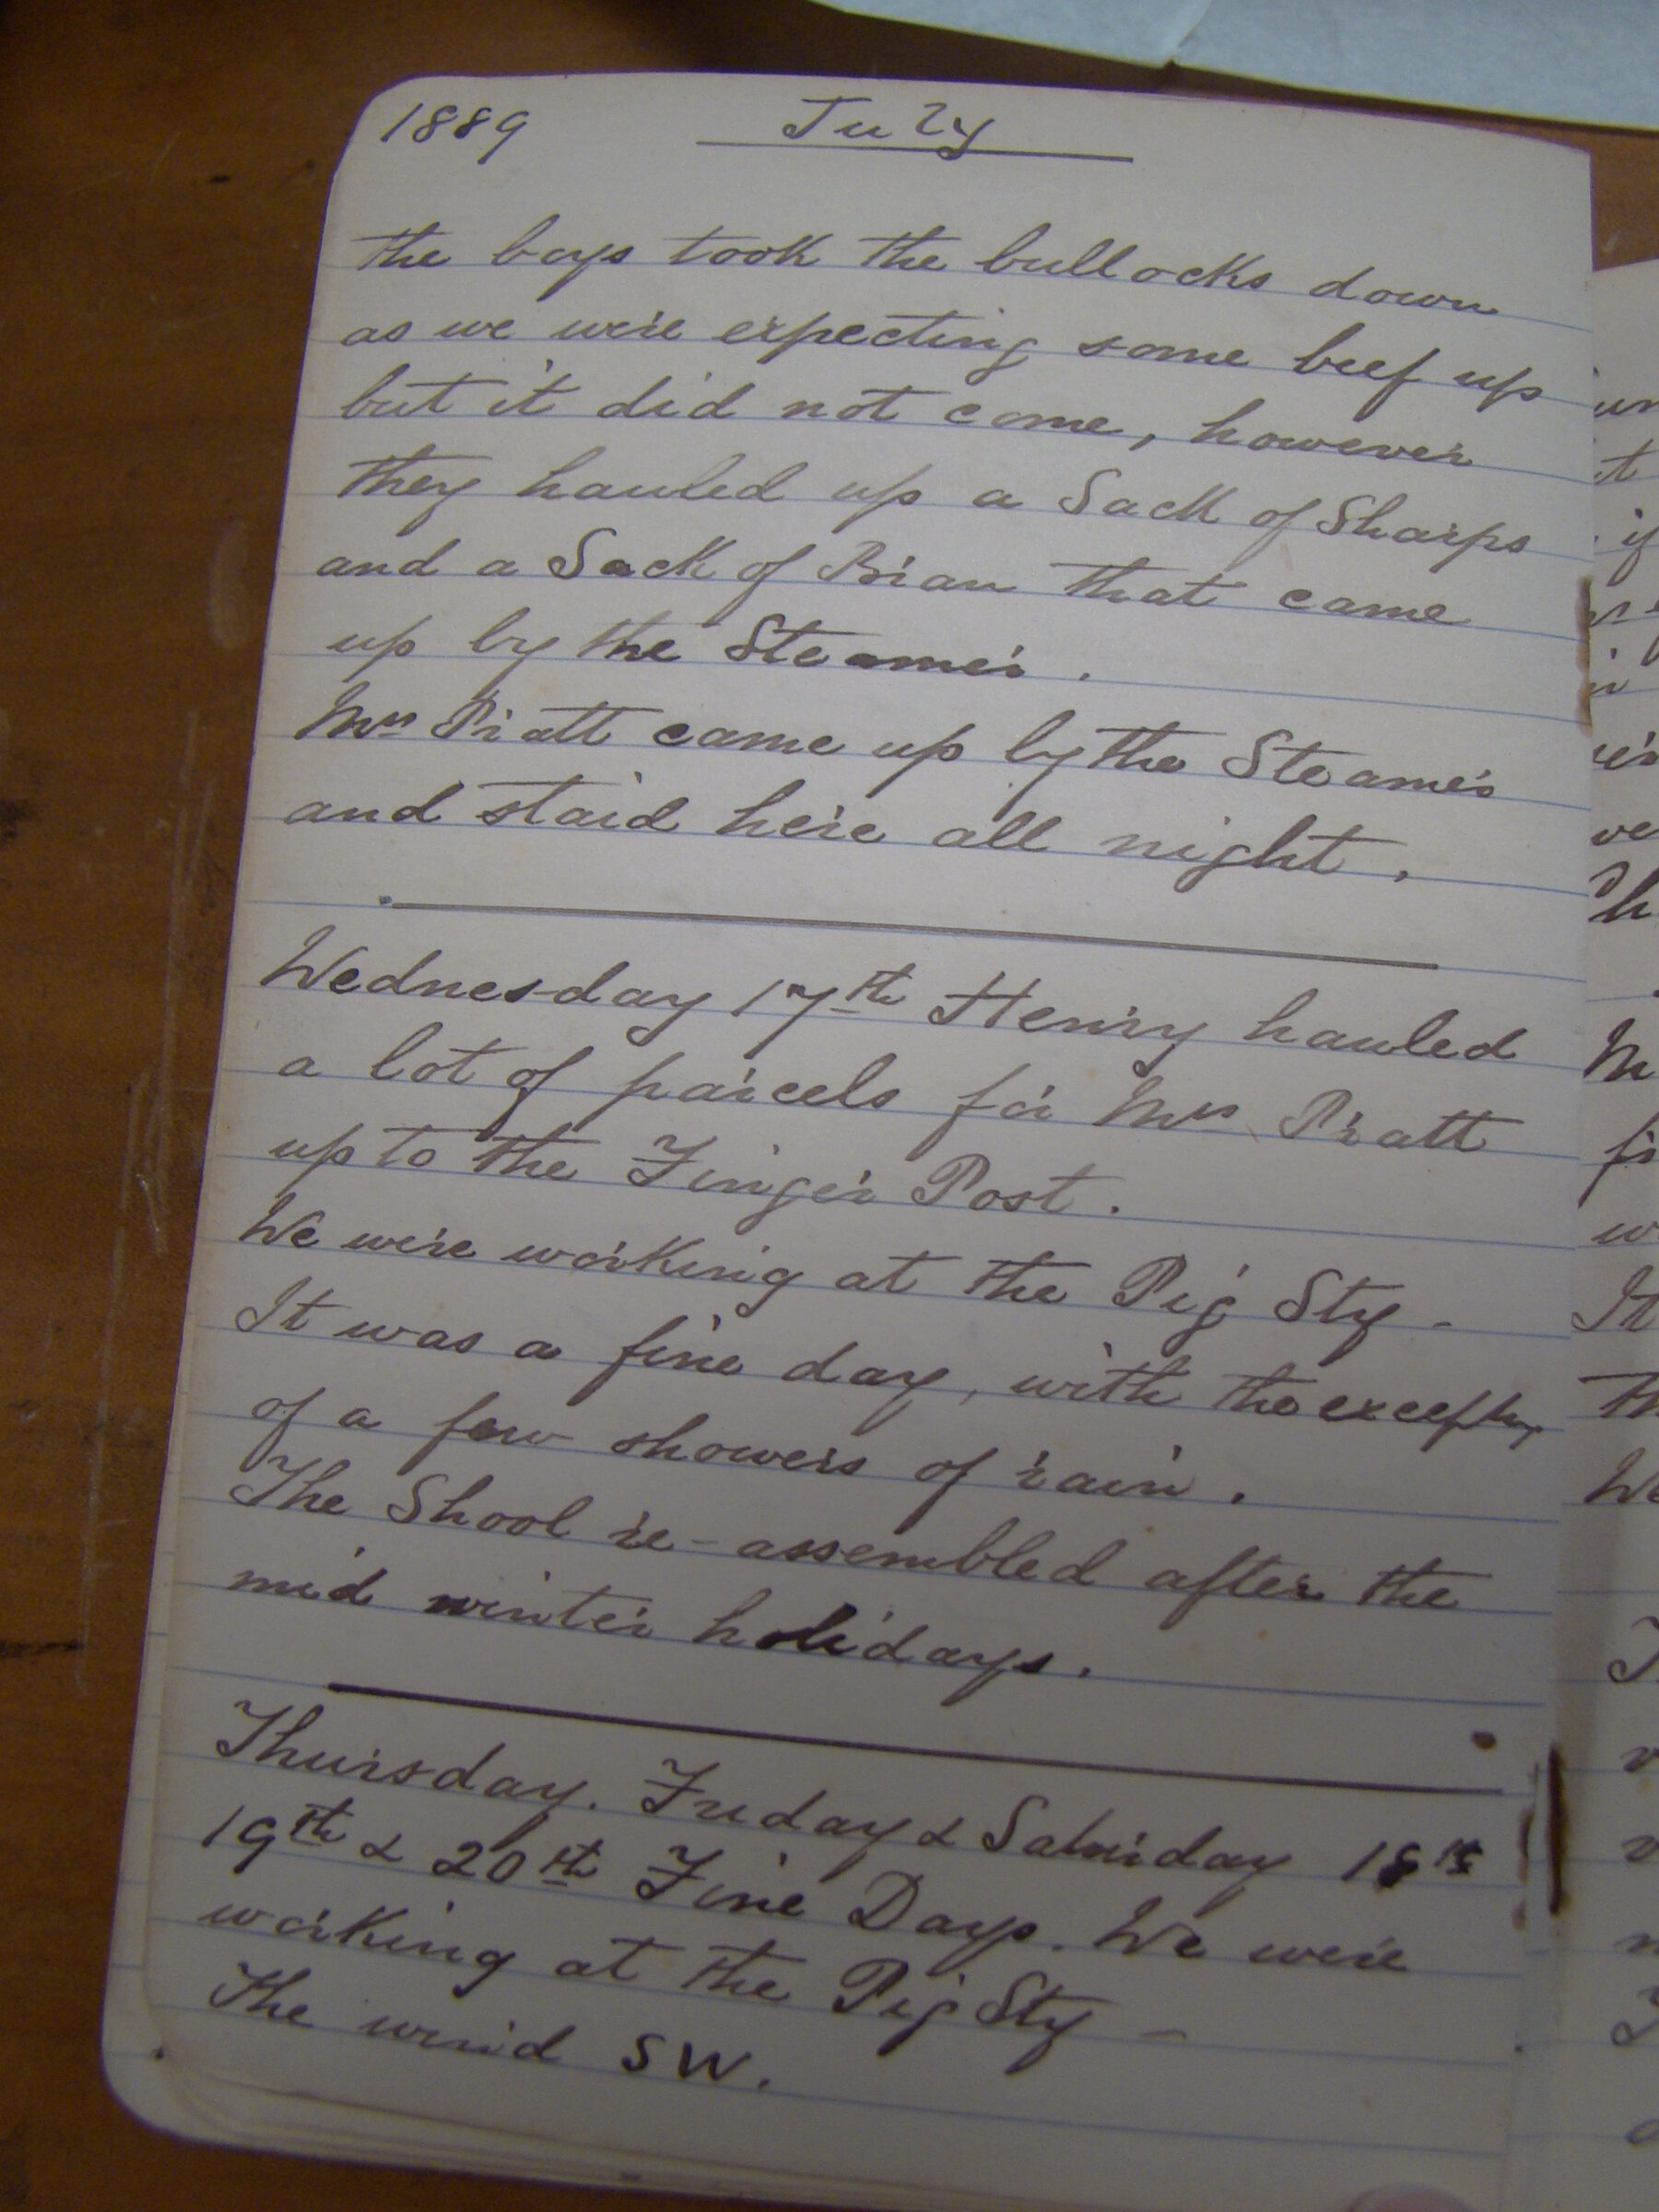 1889 July
the boys took the bullocks down
as we were expecting some beef up
but it did not come, however
they hauled up a Sack of Sharps
and a Sack of Bran that came
up by the Steamer.
Mrs Pratt came up by the Steamer
and staid here all night.
Wednesday 17th Henry hauled
a lot of parcels for Mrs Pratt
up to the Finger Post.
We were working at the Pig Sty -
It was a fine day, with the exception
of a few showers of rain.
The Shool re-assembled after the
mid winter holidays.
Thursday. Friday & Saturday 18th
19th & 20th Fine Days. We were
working at the Pig Sty -
The wind SW.